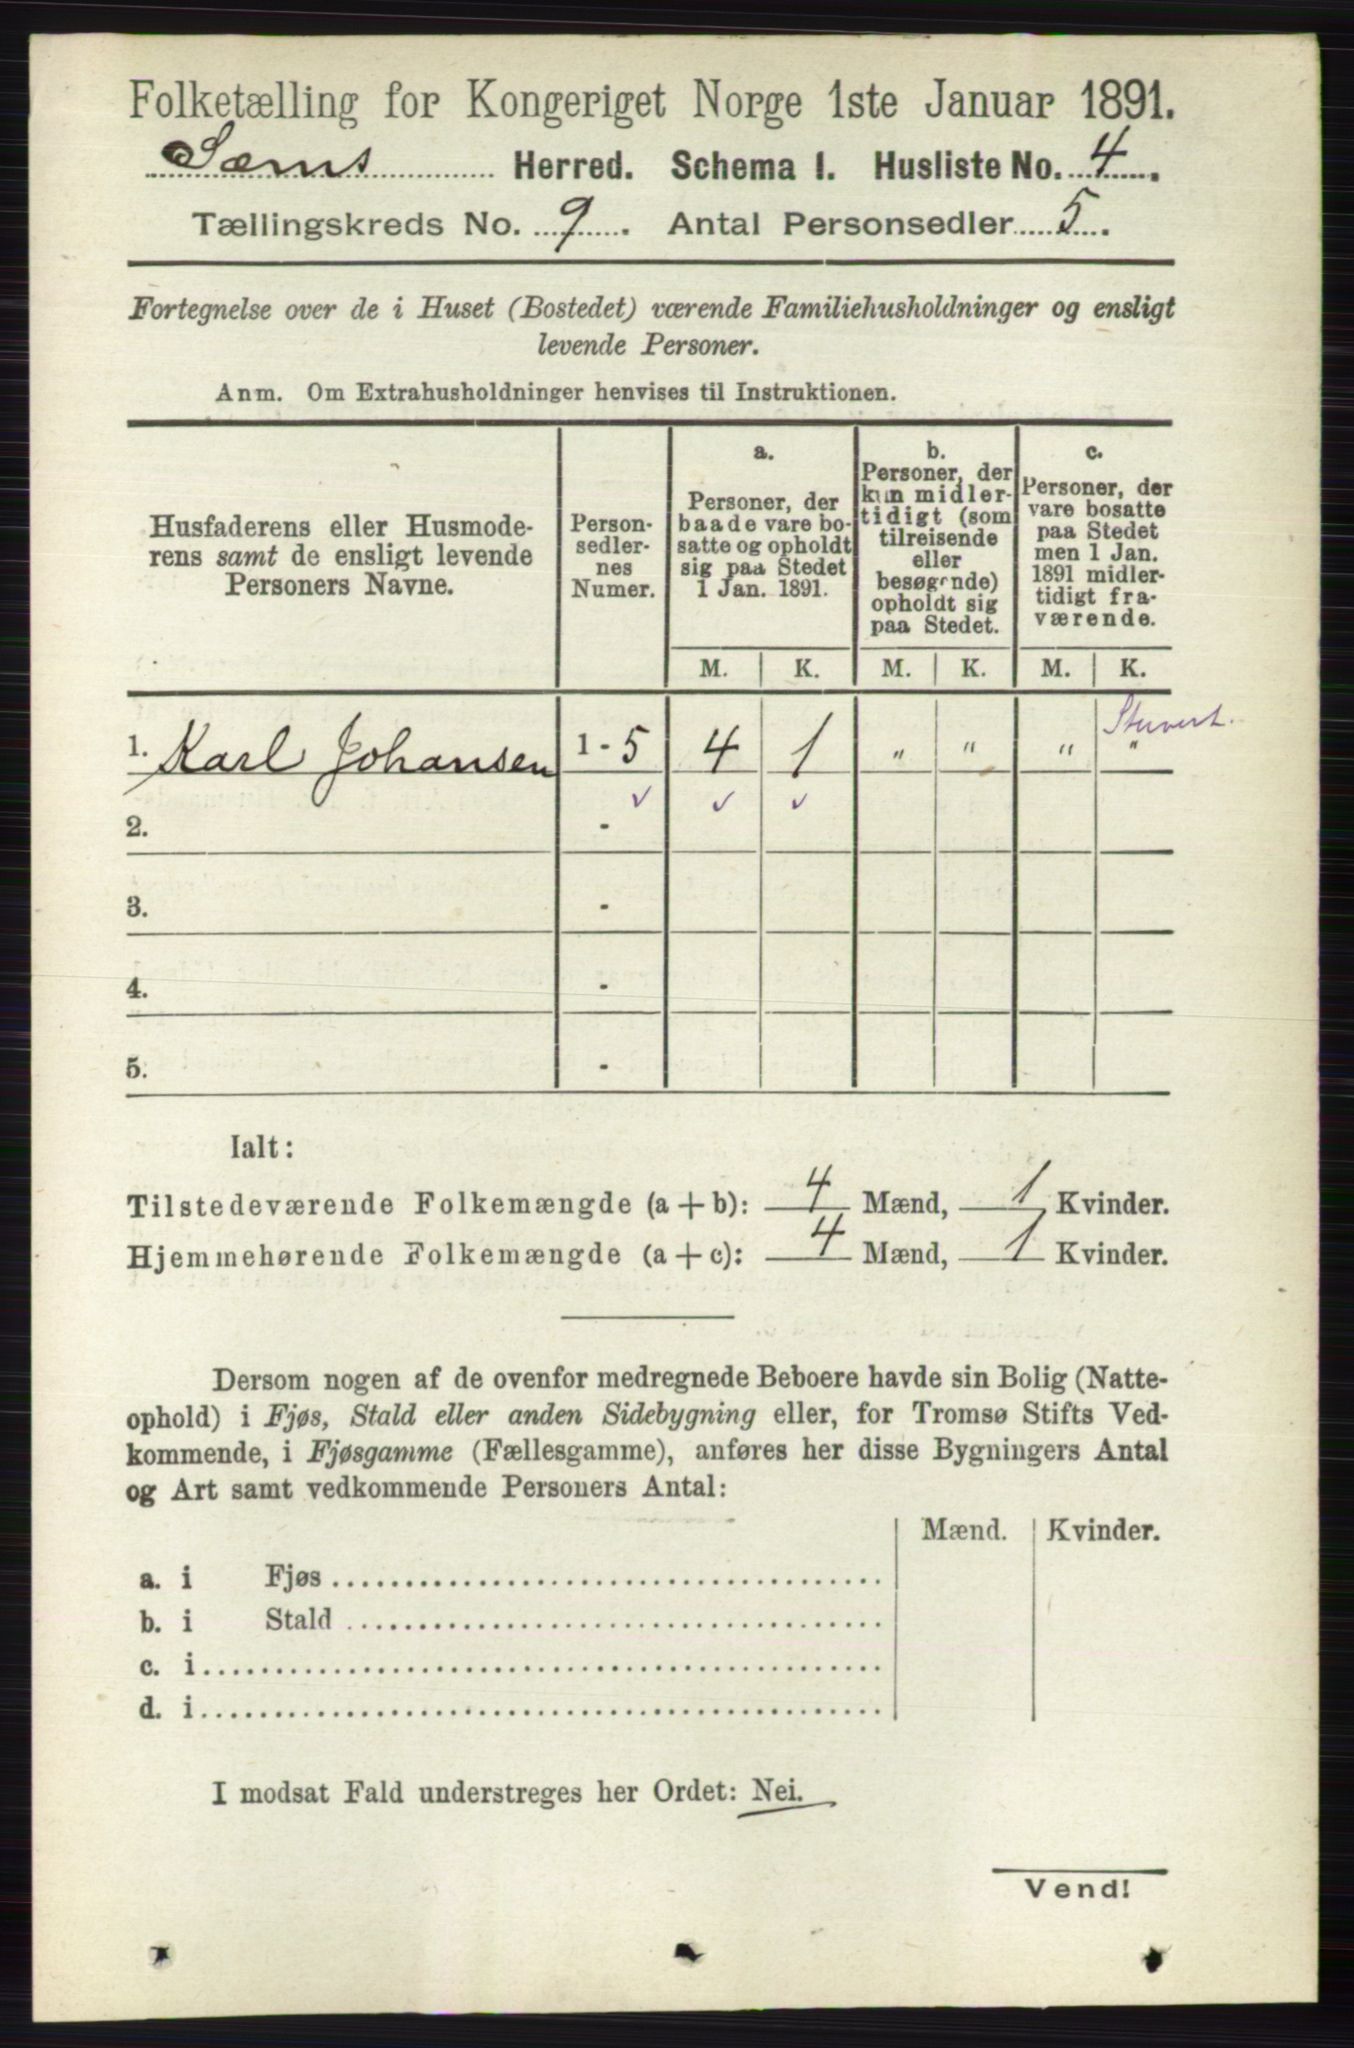 Folketælling for Kongeriget Norge 1ste Januar 1891.
Sæms Herred. Schema I. Husliste No. 4.
Tællingskreds No. 9. Antal Personsedler 5.
Fortegnelse over de i Huset (Bostedet) værende Familiehusholdninger og ensligt
levende Personer.
Anm. Om Extrahusholdninger henvises til Instruktionen.
Husfaderens eller Husmode-
rens samt de ensligt levende
Personers Navne.
Person-
sedler-
nes
Numer.
a.
Personer, der
baade vare bo-
satte og opholdt
sig paa Stedet
1 Jan. 1891.
b.
Personer, der
kun midler-
tidigt (som
tilreisende
eller
besøgende)
opholdt sig
paa Stedet.
c.
Personer, der
vare bosatte
paa Stedet
men 1 Jan.
1891 midler-
tidigt fra-
værende.
M. K. M. K. M. K.
1. Karl Johansen 1 - 5 4 1 " " " "
✓ ✓ ✓
2. -
3. -
4. -
5. -
Ialt:
Tilstedeværende Folkemængde (a + b): 4 Mænd, 1 Kvinder.
Hjemmehørende Folkemængde (a + c): 4 Mænd, 1 Kvinder.
Dersom nogen af de ovenfor medregnede Beboere havde sin Bolig (Natte-
ophold) i Fjøs, Stald eller anden Sidebygning eller, for Tromsø Stifts Ved-
kommende, i Fjøsgamme (Fællesgamme), anføres her disse Bygningers Antal
og Art samt vedkommende Personers Antal:
Mænd. Kvinder.
a. i Fjøs
b. i Stald
c. i
d. i
I modsat Fald understreges her Ordet: Nei.
Vend!